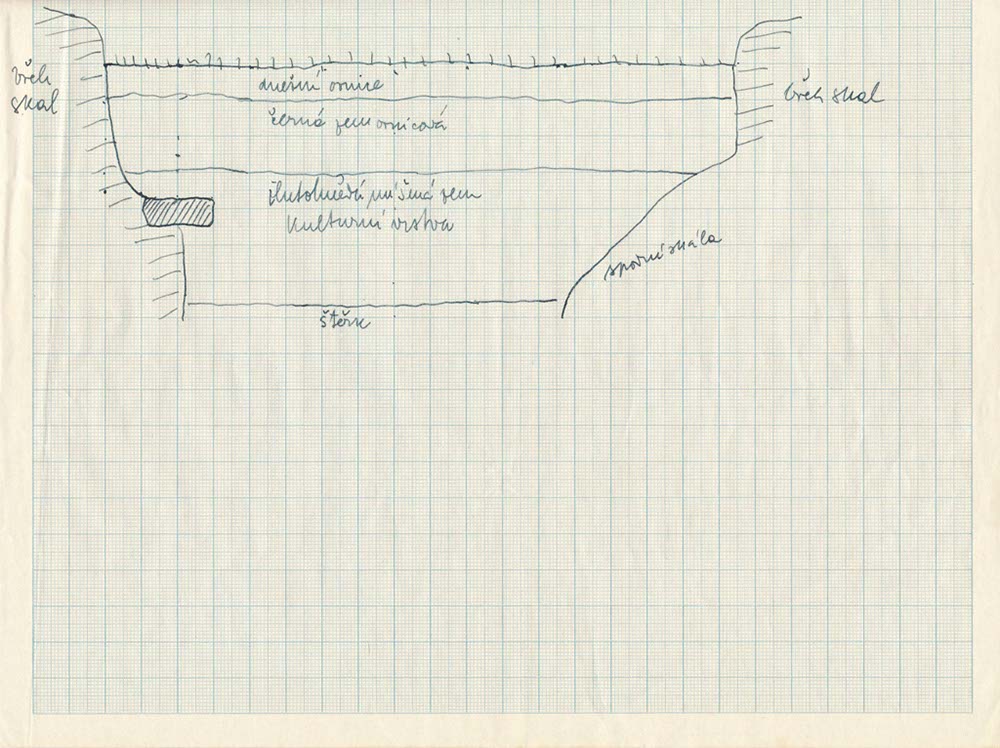 břeh
skal
dnešní ornice
břeh skal
černá zem ornicová
žlutohnědá míšená zem
kulturní vrstva
spodní skála
štěrk